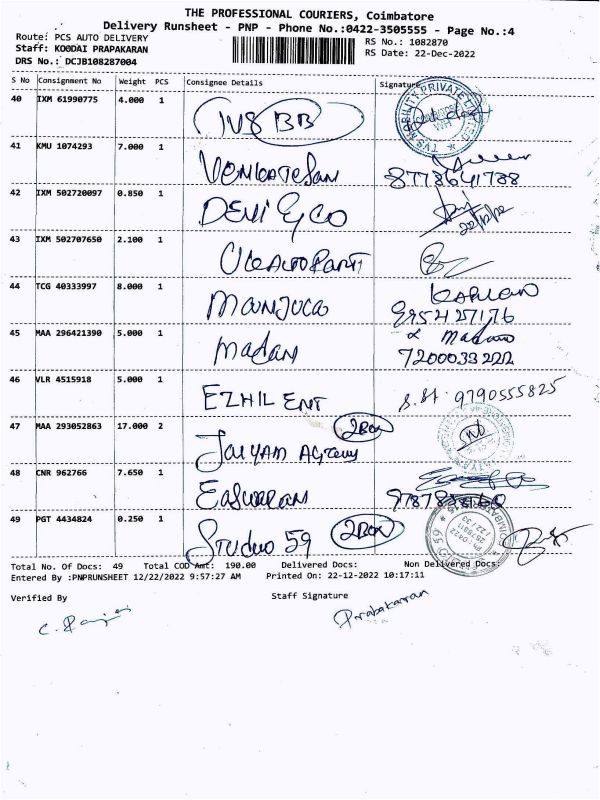 THE PROFESSIONAL COURIERS, Coimbatore
Delivery Runsheet - PNP - Phone No.:0422-3505555 - Page No.:4
Route: PCS AUTO DELIVERY
RS No.: 1082870
Staff: KOODAI PRAPAKARAN
RS Date: 22-Dec-2022
DRS No.: DCJB108287004
S No Consignment No Weight PCS Consignee Details Signature
40 IXM 61990775 4.000 1
TVS BB
41 KMU 1074293 7.000 1
VENKATESAN 8778641788
42 IXM 502720097 0.850 1
DEVI & CO
43 IXM 502707650 2.100 1
44 TCG 40333997 8.000 1
45 MAA 296421390 5.000 1
Madan
Madan 7200033222
46 VLR 4515918 5.000 1
EZHIL ENT 9790555825
47 MAA 293052863 17.000 2
2 Box
JAIYAM Agency
48 CNR 962766 7.650 1
Easwaran
49 PGT 4434824 0.250 1
2 Box
Studio 59
Total No. Of Docs: 49 Total COD Amt: 190.00 Delivered Docs: Non Delivered Docs:
Entered By :PNPRUNSHEET 12/22/2022 9:57:27 AM Printed On: 22-12-2022 10:17:11
Verified By Staff Signature
Prabakaran